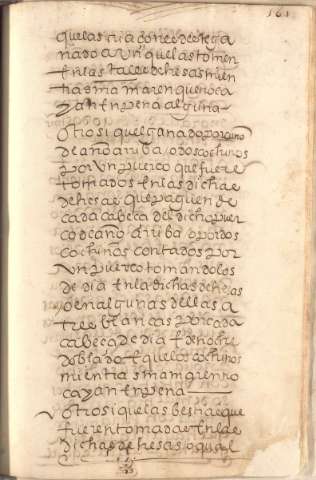 161
que las cria con el dicho ga
nado aunque las tomen
en las tales dehesas mien
tras mamaren que no ca
yan en pena alguna
otrosi quel ganado porcuno
de año arriba o dos cochinos
por un puerco que fuere
tomados en las dichas
dehesas que paguen de
cada cabeça del dicho puer
co de año arriba o por dos
cochinos contados por
un puerco tomandolos
de dia en las dichas dehesas
o en algunas dellas a
tres blancas por cada
cabeça de dia e de noche
doblado e que los cochinos
mientras mamaren no
cayan en pena
otrosi que las bestias que
fueren tomadas en las
dichas dehesas o qual